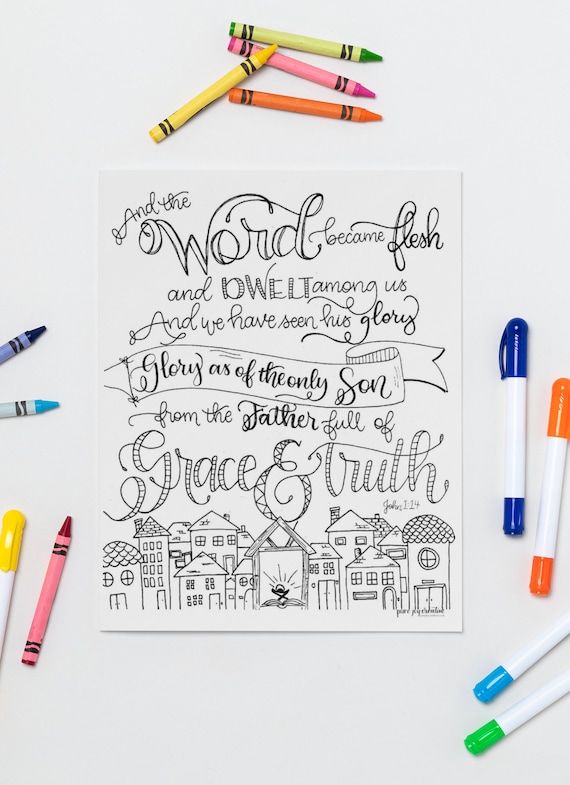 And the Word became flesh
and DWELT among us
And we have seen his glory
Glory as of the only Son
from the Father full of
Grace & truth
John 1:14
pure joy creative